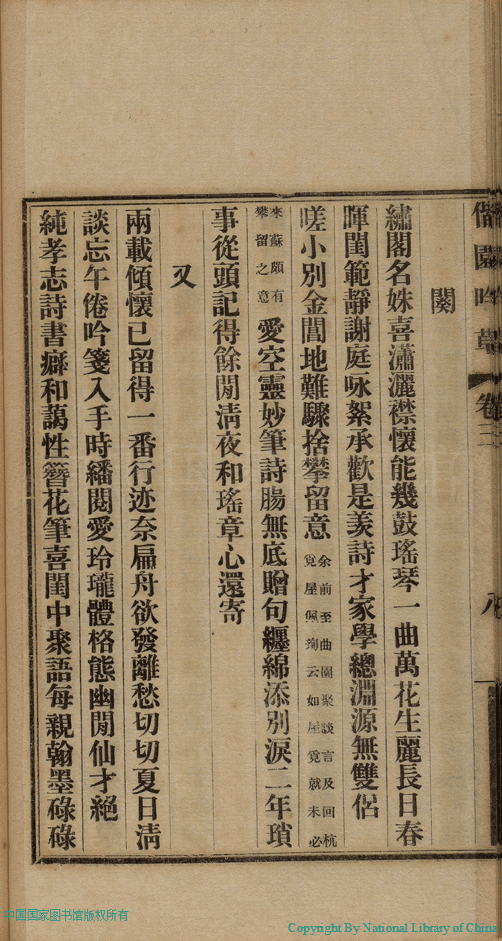 偕園吟草 卷三 八
闋
繡閣名姝喜瀟灑襟懷能幾鼓瑤琴一曲萬花生麗長日春
暉閨範靜謝庭咏絮承歡是羨詩才家學總淵源無雙侶
嗟小別金閶地難驟捨攀留意
余前至曲園聚談言及回杭
覓屋佩珣云如屋覓就未必
來蘇頗有
攀留之意
愛空靈妙筆詩腸無底贈句纏綿添別淚二年瑣
事從頭記得餘閒清夜和瑤章心還寄
又
兩載傾懷已留得一番行迹奈扁舟欲發離愁切切夏日清
談忘午倦吟箋入手時繙閱愛玲瓏體格態幽閒仙才絕
純孝志詩書癖和藹性簪花筆喜閨中聚語每親翰墨碌碌
中国国家图书馆版权所有
Copyright By National Library of China